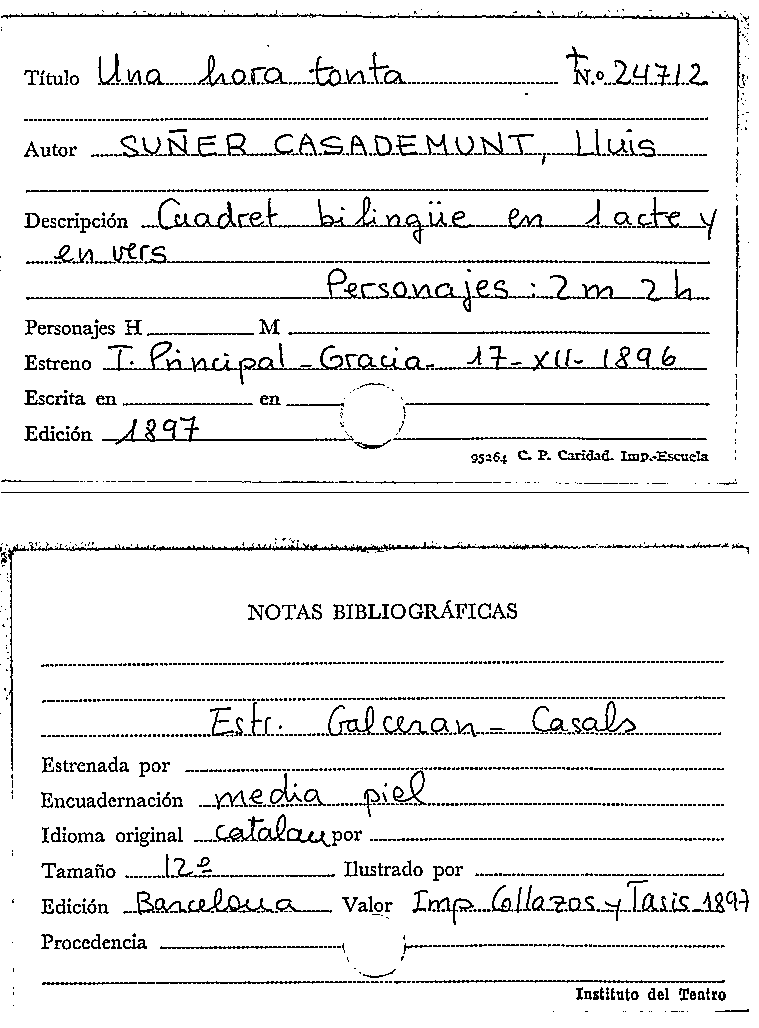 Título Una hora tonta N.º 24712
Autor SUÑER CASADEMUNT, Lluis
Descripción Cuadret bilingüe en 1 acte y
en vers
Personajes : 2 m 2 h
Personajes H M
Estreno T. Principal - Gracia - 17-XII-1896
Escrita en en
Edición 1897
95264 C. P. Caridad. Imp.-Escuela
NOTAS BIBLIOGRÁFICAS
Estr. Galceran - Casals
Estrenada por
Encuadernación media piel
Idioma original catalan por
Tamaño 12º Ilustrado por
Edición Barcelona Valor Imp Collazos y Tasis 1897
Procedencia
Instituto del Teatro